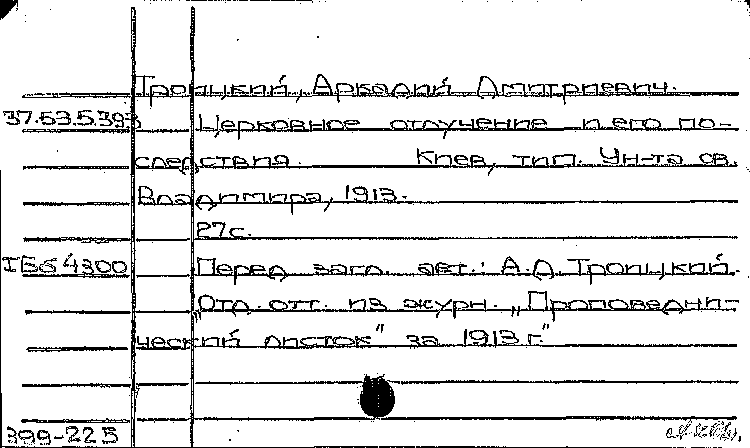 Троицкий, Аркадий Дмитриевич.
37.53.5.393 Церковное отлучение и его по-
следствия. Киев, тип. Ун-та св.
Владимира, 1913.
27с.
Перед загл. авт.: А.Д. Троицкий.
„Отд. отт. из журн. „Проповедни-
ческий листок" за 1913 г."
399-225